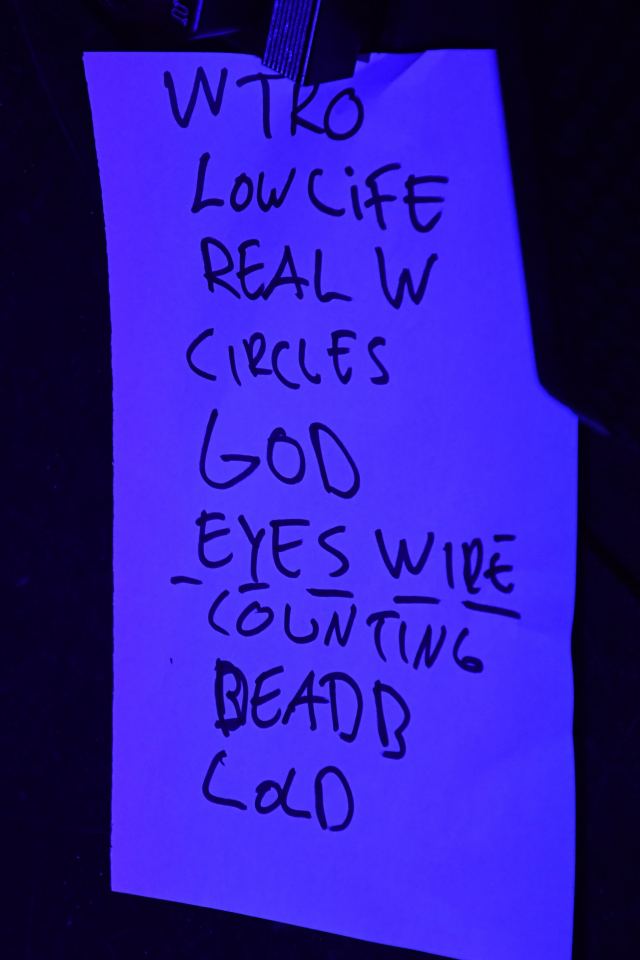 WTRO
LOWCiFE
REAL W
CIRCLES
GOD
EYES WIDE
COUNTING
DEAD B
COLD